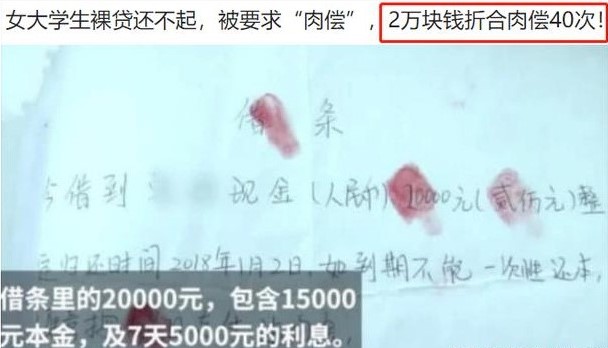 女大学生裸贷还不起，被要求“肉偿”，2万块钱折合肉偿40次！
借条
今借到 现金（人民币）20000元（贰佰元）整
归还时间2018年1月2日，如到期不能一次性还本，
借条里的20000元，包含15000
元本金，及7天5000元的利息。